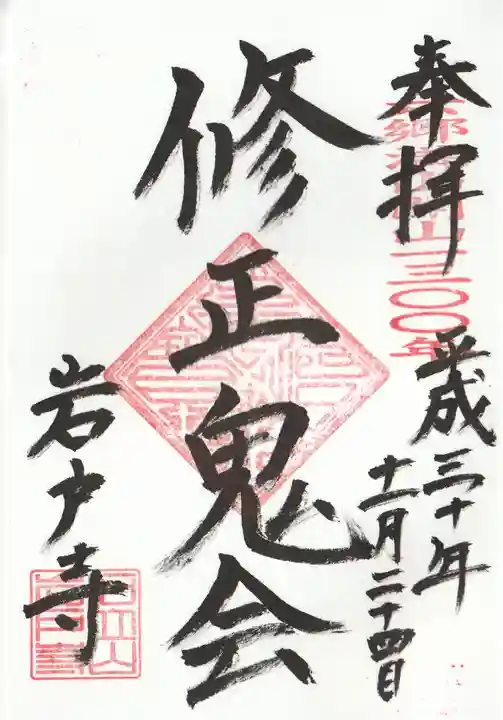 奉拝
六郷満山開山一三〇〇年
平成三十年
十一月二十四日
修正鬼会
岩戸寺